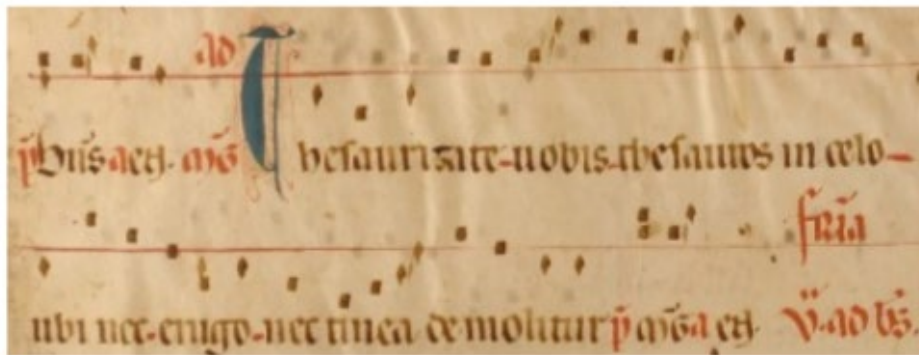 ad
p̄ bn̄s a eg. ag̅ Thesaurizate nobis thesauros in celo
fr̄ia
ubi nec erugo nec tinea demolitur p̄ ag̅ a eg. V̄ ad bn̄s